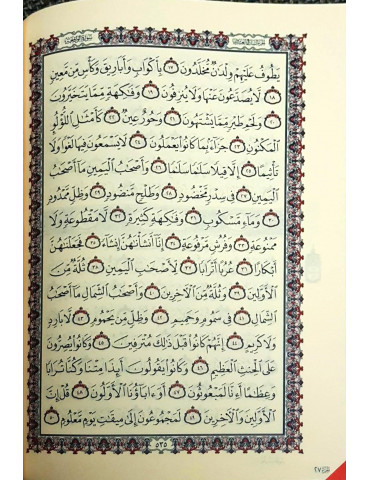 يَطُوفُ عَلَيْهِمْ وِلْدَٰنٌ مُّخَلَّدُونَ ١٧ بِأَكْوَابٍ وَأَبَارِيقَ وَكَأْسٍ مِّن مَّعِينٍ
١٨ لَّا يُصَدَّعُونَ عَنْهَا وَلَا يُنزِفُونَ ١٩ وَفَٰكِهَةٍ مِّمَّا يَتَخَيَّرُونَ
٢٠ وَلَحْمِ طَيْرٍ مِّمَّا يَشْتَهُونَ ٢١ وَحُورٌ عِينٌ ٢٢ كَأَمْثَٰلِ ٱللُّؤْلُؤِ
ٱلْمَكْنُونِ ٢٣ جَزَآءًۢ بِمَا كَانُوا۟ يَعْمَلُونَ ٢٤ لَا يَسْمَعُونَ فِيهَا لَغْوًا وَلَا
تَأْثِيمًا ٢٥ إِلَّا قِيلًا سَلَٰمًا سَلَٰمًا ٢٦ وَأَصْحَٰبُ ٱلْيَمِينِ مَآ أَصْحَٰبُ
ٱلْيَمِينِ ٢٧ فِى سِدْرٍ مَّخْضُودٍ ٢٨ وَطَلْحٍ مَّنضُودٍ ٢٩ وَظِلٍّ مَّمْدُودٍ
٣٠ وَمَآءٍ مَّسْكُوبٍ ٣١ وَفَٰكِهَةٍ كَثِيرَةٍ ٣٢ لَّا مَقْطُوعَةٍ وَلَا
مَمْنُوعَةٍ ٣٣ وَفُرُشٍ مَّرْفُوعَةٍ ٣٤ إِنَّآ أَنشَأْنَٰهُنَّ إِنشَآءً ٣٥ فَجَعَلْنَٰهُنَّ
أَبْكَارًا ٣٦ عُرُبًا أَتْرَابًا ٣٧ لِّأَصْحَٰبِ ٱلْيَمِينِ ٣٨ ثُلَّةٌ مِّنَ
ٱلْأَوَّلِينَ ٣٩ وَثُلَّةٌ مِّنَ ٱلْءَاخِرِينَ ٤٠ وَأَصْحَٰبُ ٱلشِّمَالِ مَآ أَصْحَٰبُ
ٱلشِّمَالِ ٤١ فِى سَمُومٍ وَحَمِيمٍ ٤٢ وَظِلٍّ مِّن يَحْمُومٍ ٤٣ لَّا بَارِدٍ
وَلَا كَرِيمٍ ٤٤ إِنَّهُمْ كَانُوا۟ قَبْلَ ذَٰلِكَ مُتْرَفِينَ ٤٥ وَكَانُوا۟ يُصِرُّونَ
عَلَى ٱلْحِنثِ ٱلْعَظِيمِ ٤٦ وَكَانُوا۟ يَقُولُونَ أَئِذَا مِتْنَا وَكُنَّا تُرَابًا
وَعِظَٰمًا أَءِنَّا لَمَبْعُوثُونَ ٤٧ أَوَءَابَآؤُنَا ٱلْأَوَّلُونَ ٤٨ قُلْ إِنَّ
ٱلْأَوَّلِينَ وَٱلْءَاخِرِينَ ٤٩ لَمَجْمُوعُونَ إِلَىٰ مِيقَٰتِ يَوْمٍ مَّعْلُومٍ ٥٠
٥٣٥
٢٧